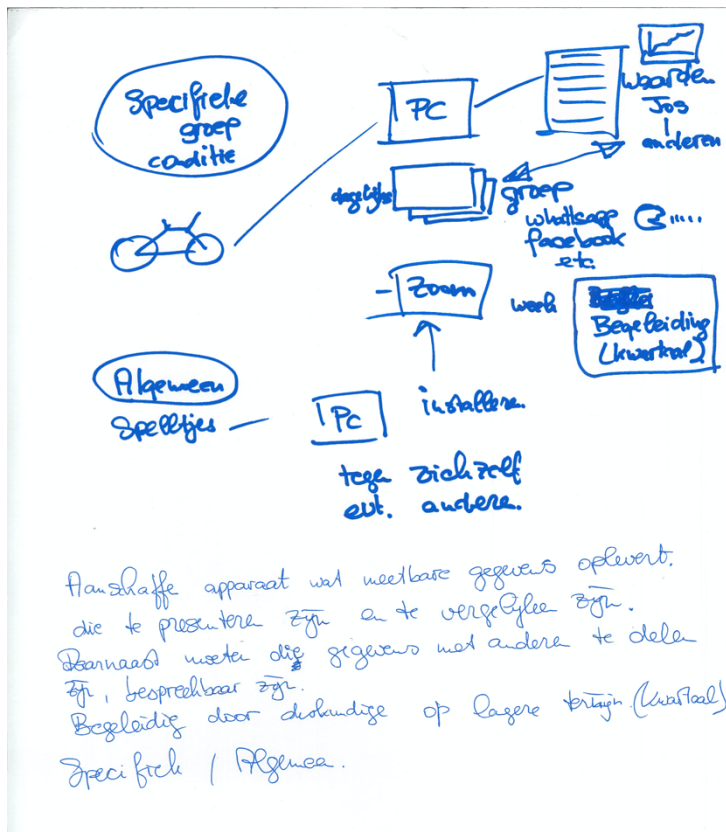 Specifieke
groep
conditie
PC
waarden
Jos
anderen
dagelijks
groep
whatsapp
facebook
etc.
Zoom
week
Begeleiding
(kwartaal)
Algemeen
Spelletjes
PC
installeren
tegen zichzelf
evt. anderen.
Aanschaffe apparaat wat meetbare gegevens oplevert.
die te presenteren zijn en te vergelijken zijn.
Daarnaast moeten die gegevens met anderen te delen
zijn, bespreekbaar zijn.
Begeleidig door deskundige op lagere termijn (kwartaal)
Specifiek / Algemee.